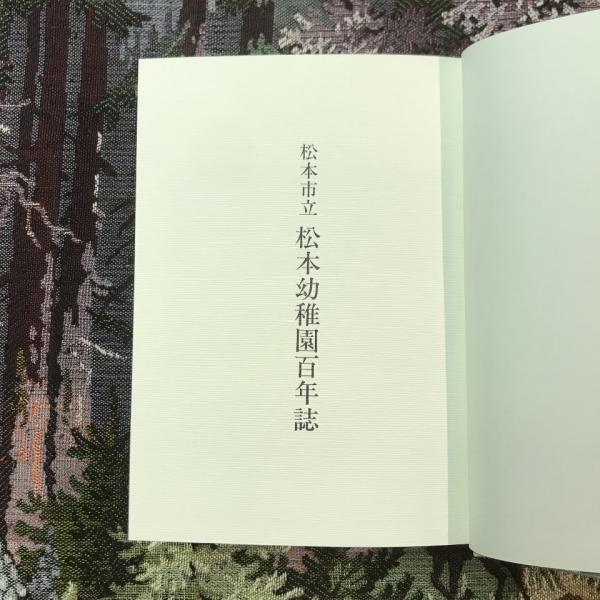 松本市立 松本幼稚園百年誌